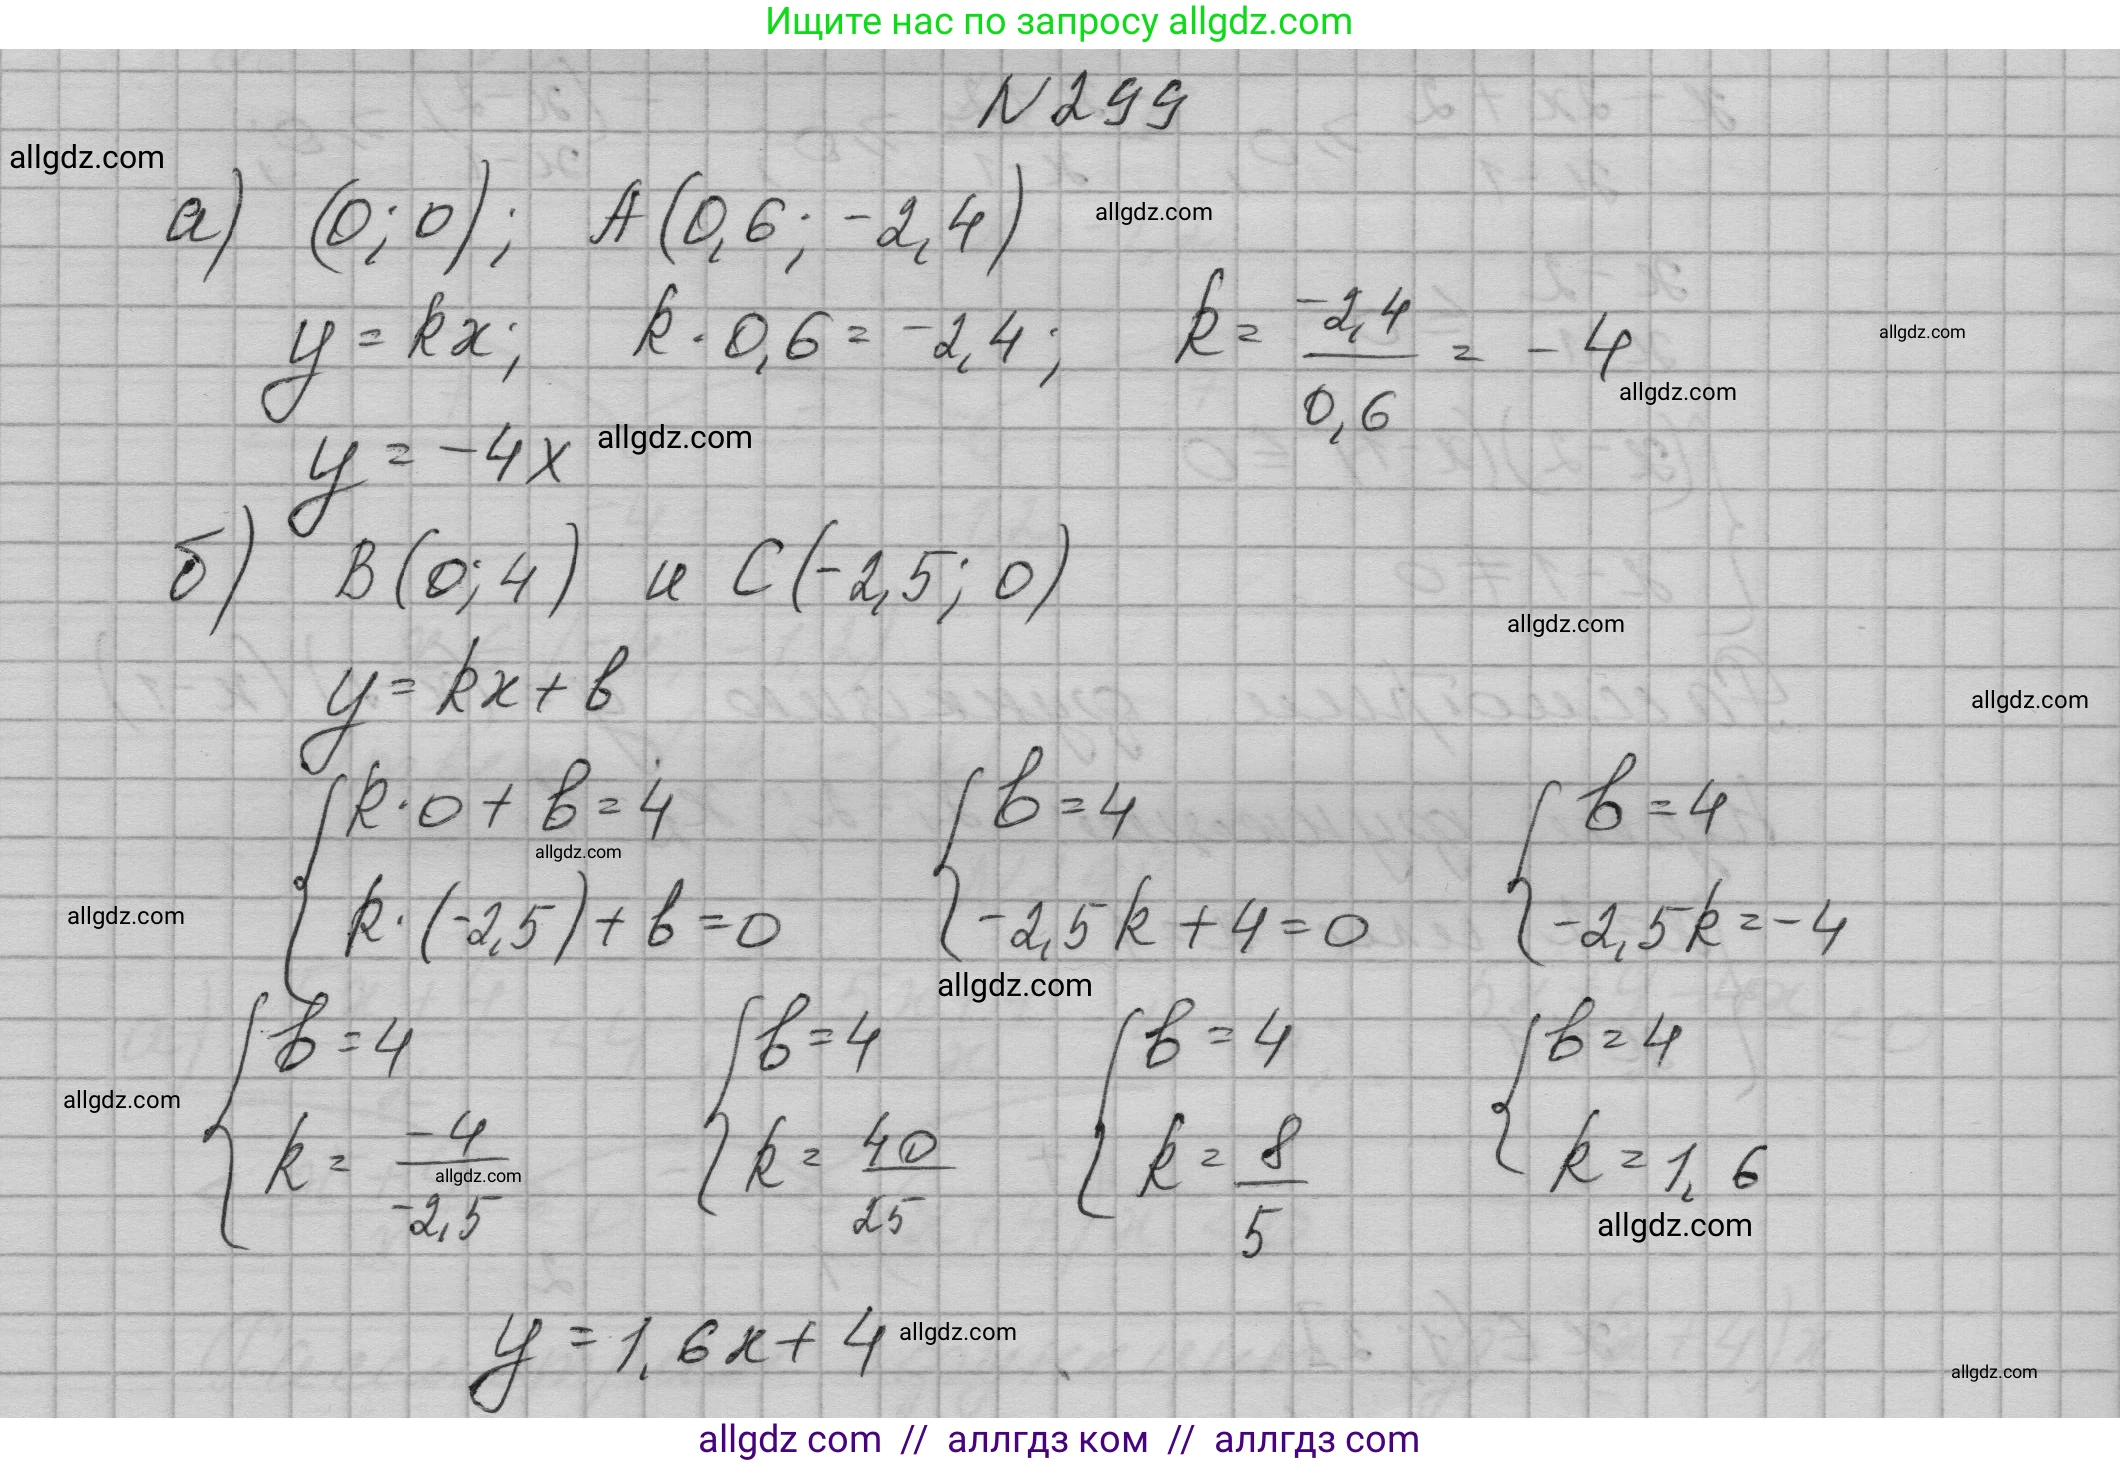 Ищите нас по запросу allgdz.com
N299
allgdz.com
а) (0; 0); A(0,6; -2,4) allgdz.com
y = kx; k · 0,6 = -2,4; k = -2,4/0,6 = -4 allgdz.com
allgdz.com
y = -4x allgdz.com
б) B(0; 4) и C(-2,5; 0)
allgdz.com
y = kx + b allgdz.com
{ k · 0 + b = 4 { b = 4 { b = 4
allgdz.com
allgdz.com k · (-2,5) + b = 0 -2,5k + 4 = 0 -2,5k = -4
allgdz.com
{ b = 4 { b = 4 { b = 4 { b = 4
allgdz.com
k = -4/-2,5 k = 40/25 k = 8/5 k = 1,6
allgdz.com
allgdz.com
y = 1,6x + 4 allgdz.com
allgdz.com
allgdz com // аллгдз ком // аллгдз com